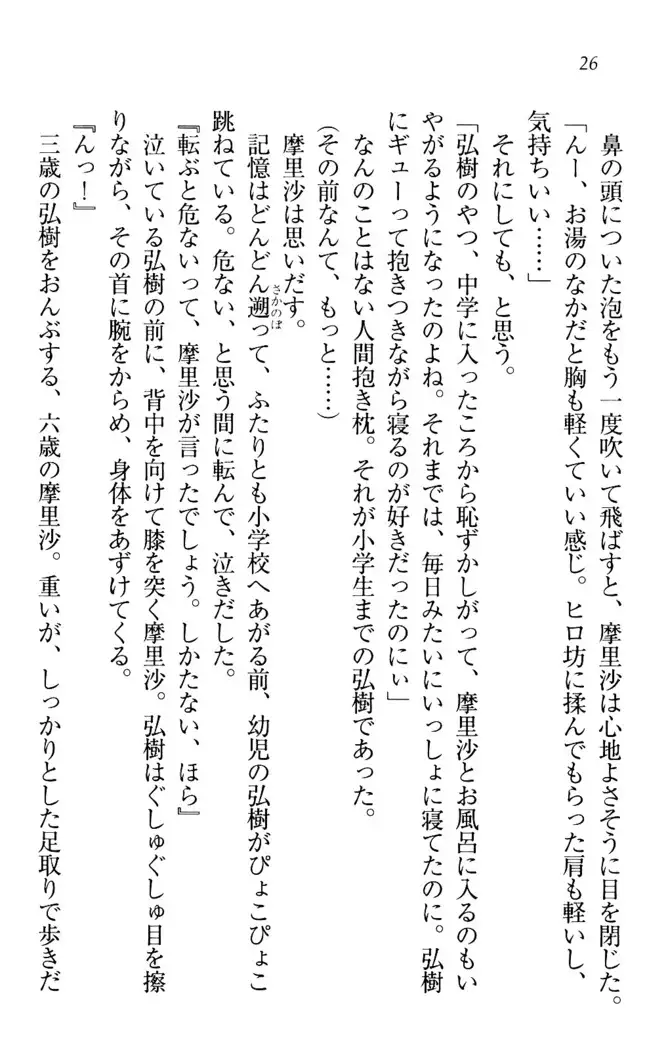 26
鼻の頭についた泡をもう一度吹いて飛ばすと、摩里沙は心地よさそうに目を閉じた。
「んー、お湯のなかだと胸も軽くていい感じ。ヒロ坊に揉んでもらった肩も軽いし、
気持ちいい……」
それにしても、と思う。
「弘樹のやつ、中学に入ったころから恥ずかしがって、摩里沙とお風呂に入るのもい
やがるようになったのよね。それまでは、毎日みたいにいっしょに寝てたのに。弘樹
にギューって抱きつきながら寝るのが好きだったのにぃ」
なんのことはない人間抱き枕。それが小学生までの弘樹であった。
(その前なんて、もっと……)
摩里沙は思いだす。
記憶はどんどん遡って、ふたりとも小学校へあがる前、幼児の弘樹がぴょこぴょこ
さかのぼ
跳ねている。危ない、と思う間に転んで、泣きだした。
『転ぶと危ないって、摩里沙が言ったでしょう。しかたない、ほら』
泣いている弘樹の前に、背中を向けて膝を突く摩里沙。弘樹はぐしゅぐしゅ目を擦
りながら、その首に腕をからめ、身体をあずけてくる。
『んっ！』
三歳の弘樹をおんぶする、六歳の摩里沙。重いが、しっかりとした足取りで歩きだ